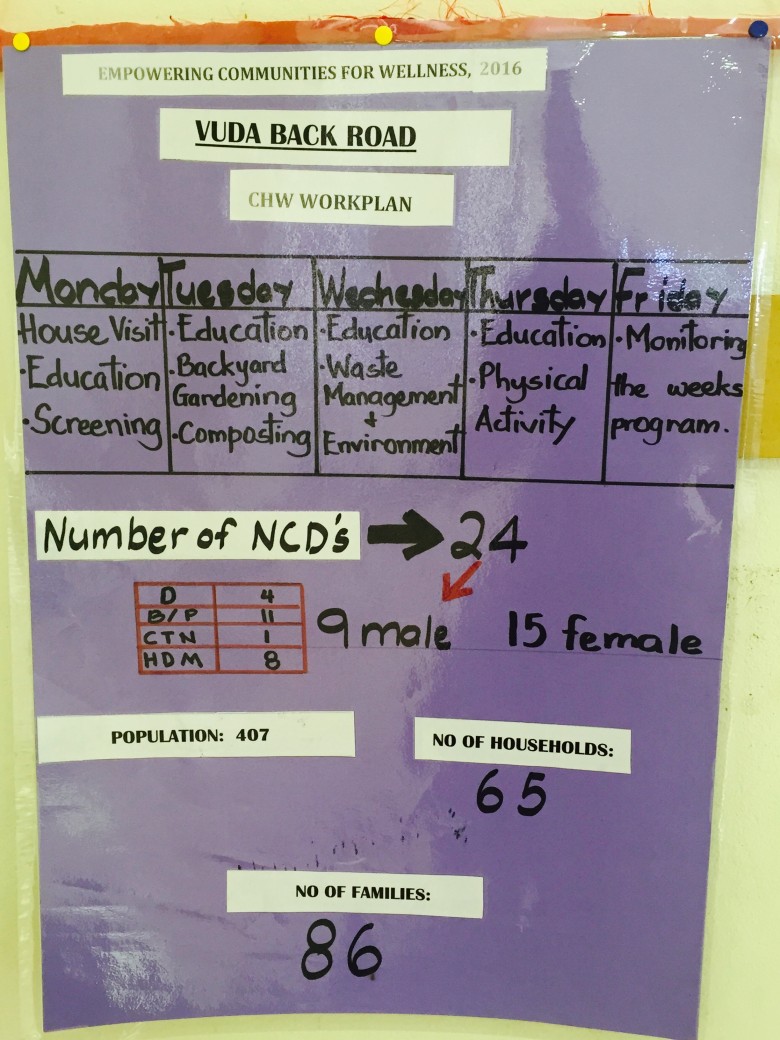 EMPOWERING COMMUNITIES FOR WELLNESS, 2016
VUDA BACK ROAD
CHW WORKPLAN
Monday Tuesday Wednesday Thursday Friday
House Visit
·Education
·Screening
·Education
·Backyard
Gardening
·Composting
·Education
·Waste
Management
+
Environment
·Education
·Physical
Activity
·Monitoring
the weeks
program.
Number of NCD's → 24
D 4
B/P 11
CTN 1
HDM 8
9 male 15 female
POPULATION: 407
NO OF HOUSEHOLDS:
65
NO OF FAMILIES:
86